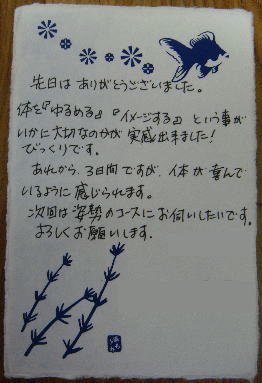 先日は ありがとうございました。
体を『ゆるめる』『イメージする』という事が
いかに大切なのかが 実感出来ました!
びっくりです。
あれから、3日間ですが、体が喜んで
いるように感じられます。
次回は姿勢のコースにお伺いしたいです。
よろしくお願いします。